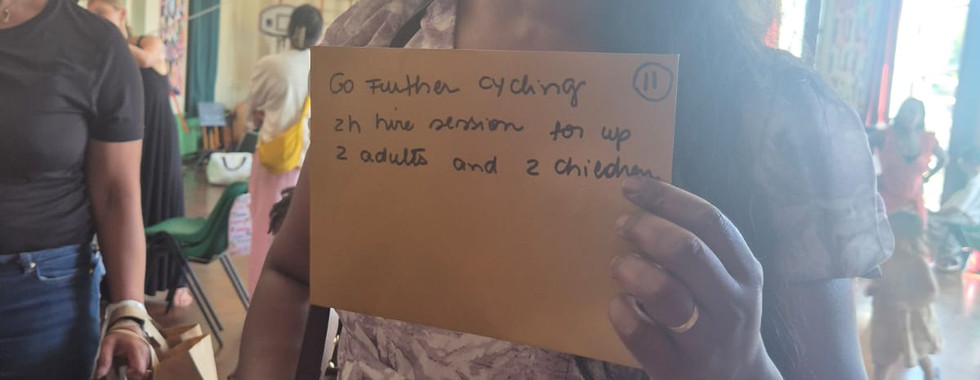 Go Further cycling 11
2h hire session for up
2 adults and 2 children